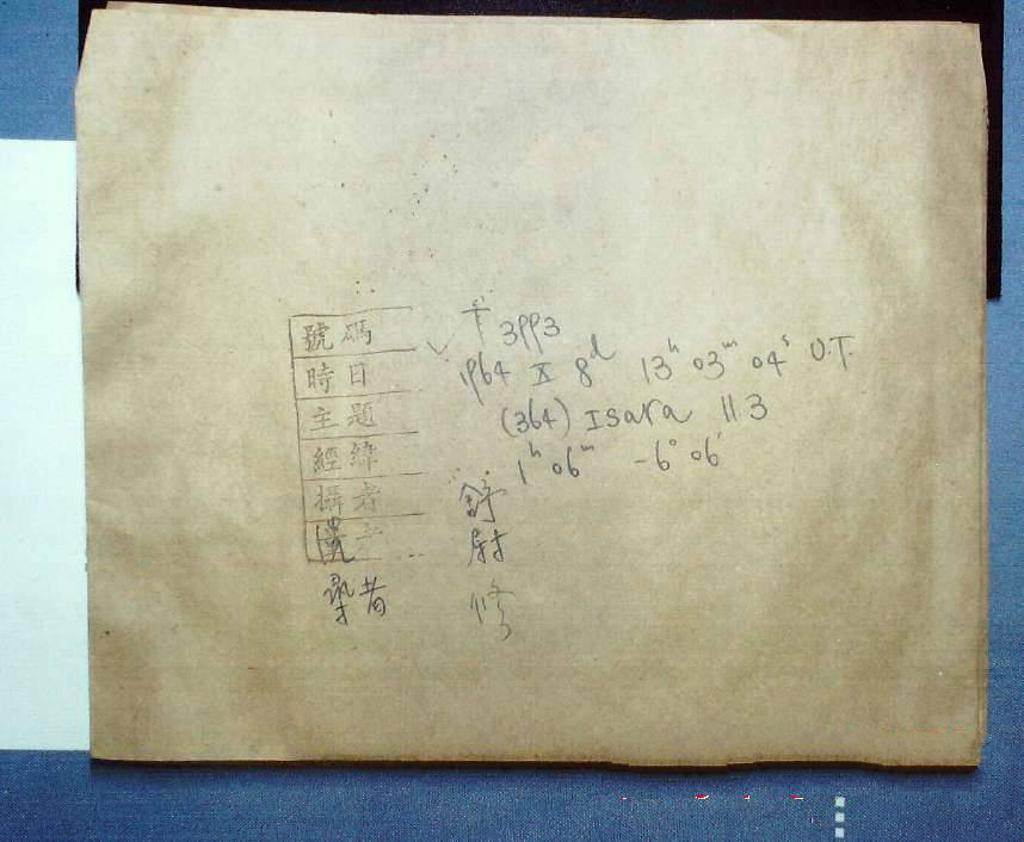 號碼 3993
時日 1964 X 8d 13h 03m 04s U.T.
主題 (364) Isara 113
經緯 1h 06m -6° 06'
攝者 舒
尉
者 修